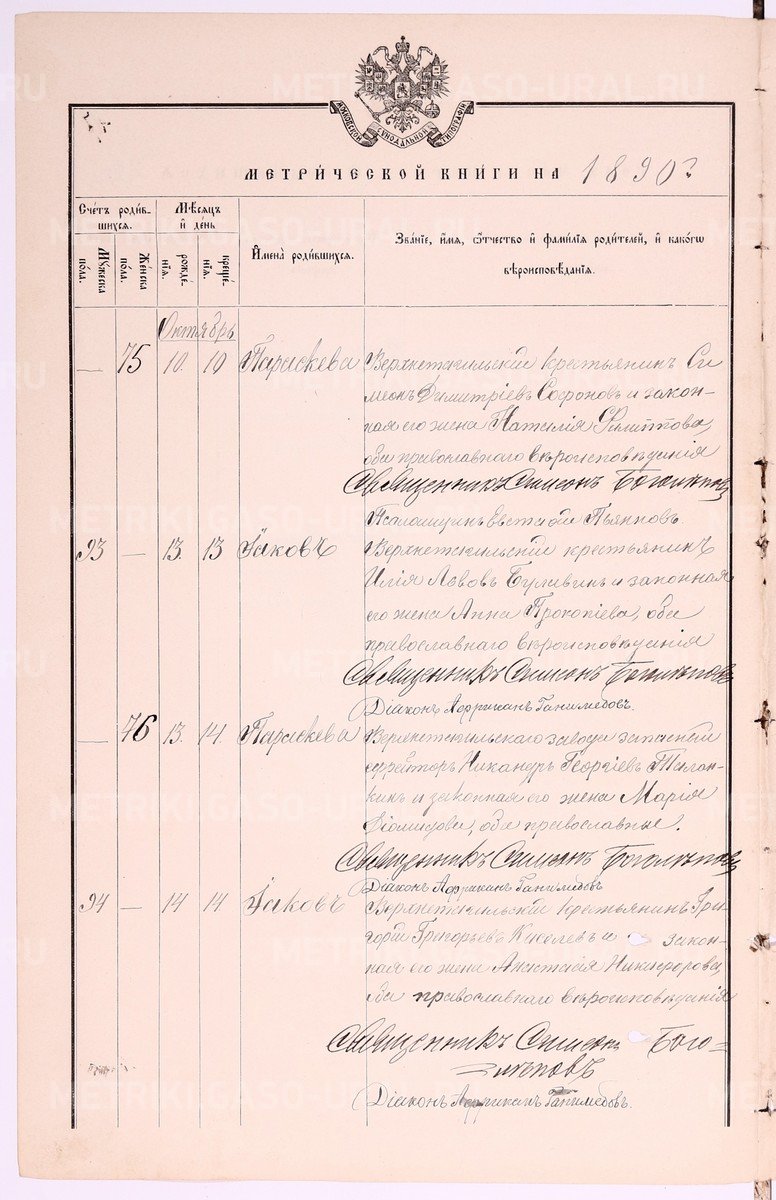 МОСКОВСКОЙ СѴНОДАЛЬНОЙ ТИПОГРАФІИ
МЕТРИ́ЧЕСКОЙ КНИ́ГИ НА 1890 г
Сче́тъ роди́в-
шихся.
Мѣ́сяцъ
и де́нь
И҆мена̀ роди́вшихся.
Зва́нїе, и҆́мя, ѻ҆́тчество и҆ фами́лїа роди́телей, и҆ како́гѡ
вѣроисповѣ́данїя.
Мꙋ́жеска
по́ла.
Же́нска
по́ла.
рожде́-
нїя.
креще́-
нїя.
Октябрь
— 75 10. 10 Параскева Верхнетагильскій крестьянинъ Си
меонъ Димитріевъ Софоновъ и закон-
ная его жена Наталія Филиппова,
оба православнаго вѣроисповѣданія
Священникъ Симеонъ Боголѣповъ
Псаломщикъ Евстафій Пьянковъ.
93 — 13. 13 Іаковъ Верхнетагильскій крестьянинъ
Илія Львовъ Буливинъ и законная
его жена Анна Прокопіева, оба
православнаго вѣроисповѣданія
Священникъ Симеонъ Боголѣповъ
Діаконъ Африканъ Ганимедовъ.
— 76 13. 14. Параскева Верхнетагильскаго завода запасный
ефрейторъ Никандръ Георгіевъ
и законная его жена Марія
Діомидова, оба православные.
Священникъ Симеонъ Боголѣповъ
Діаконъ Африканъ Ганимедовъ
94 — 14 14 Іаковъ Верхнетагильскій крестьянинъ Гри-
горій Григорьевъ Киселевъ и закон-
ная его жена Анастасія Никифорова,
оба православнаго вѣроисповѣданія
Священникъ Симеонъ Бого-
лѣповъ
Діаконъ Африканъ Ганимедовъ.
METRIKI.GASO-URAL.RU